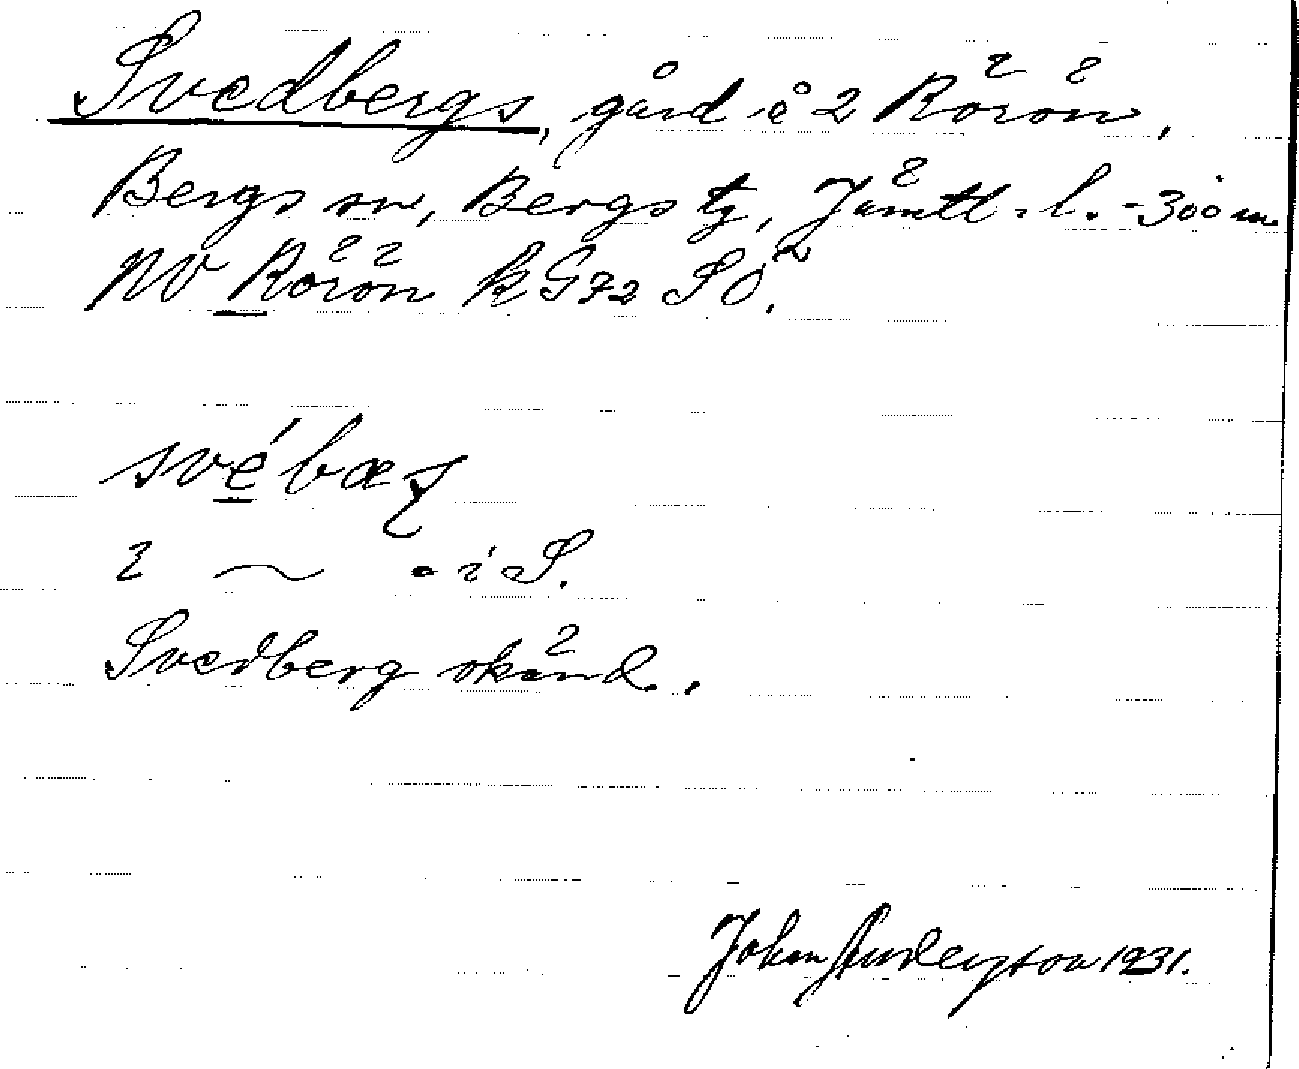 Svedbergs, gård å 2 Rörön,
Bergs sn, Bergs tg, Jämtl. l. - 300 m
NV Rörön k G72 SÖ.
své bæ
2 ~ - i S.
Svedberg okänd.
Johan Anderzson 1931.